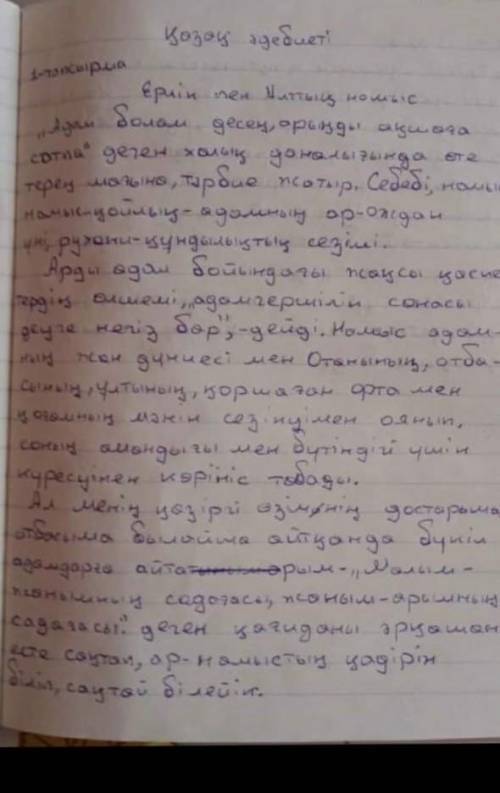 Қазақ әдебиеті
1-тапсырма
Ерлік пен Ұлттық намыс
"Адам болам десең, арыңды ақшаға
сатпа" деген халық даналығында өте
терең мағына, тәрбие жатыр. Себебі, намыс
намыс-қойлық-адамның ар-ождан
үні, рухани-құндылықтың сезімі.
Арды адам бойындағы жақсы қасие
тердің өлшемі, "адамгершілік сонасы
деуге негіз бар", -дейді. Намыс адам-
ның жан дүниесі мен Отанының, отба-
сының, ұлтының, қоршаған орта мен
қоғамның мәнін сезінуімен оянып,
соның амандығы мен бүтіндігі үшін
күресуінен көрініс табады.
Ал менің қазіргі өзімнің достарыма
отбасыма былайша айтқанда бүкіл
адамдарға айтарым-"Малым-
жанымның садағасы, жаным-арымның
садағасы." деген қағиданы әрқашан
есте сақтап, ар-намыстың қадірін
біліп, сақтай білейік.